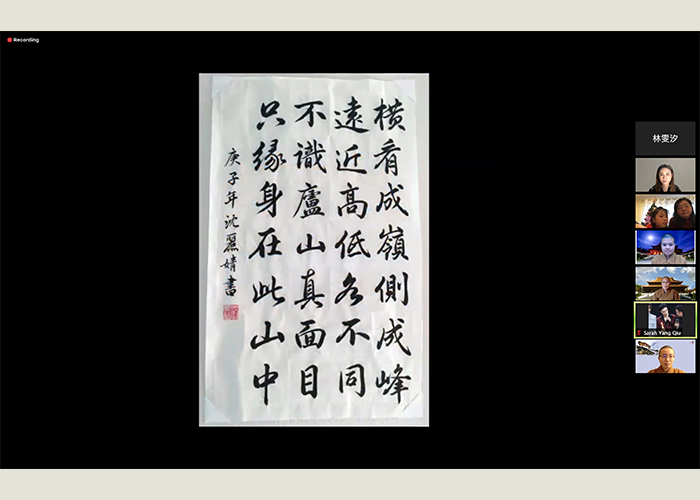 Recording
横看成嶺側成峰
遠近高低各不同
不識廬山真面目
只緣身在此山中
庚子年沈麗婧書
林雯汐
Sarah Yang Qiu